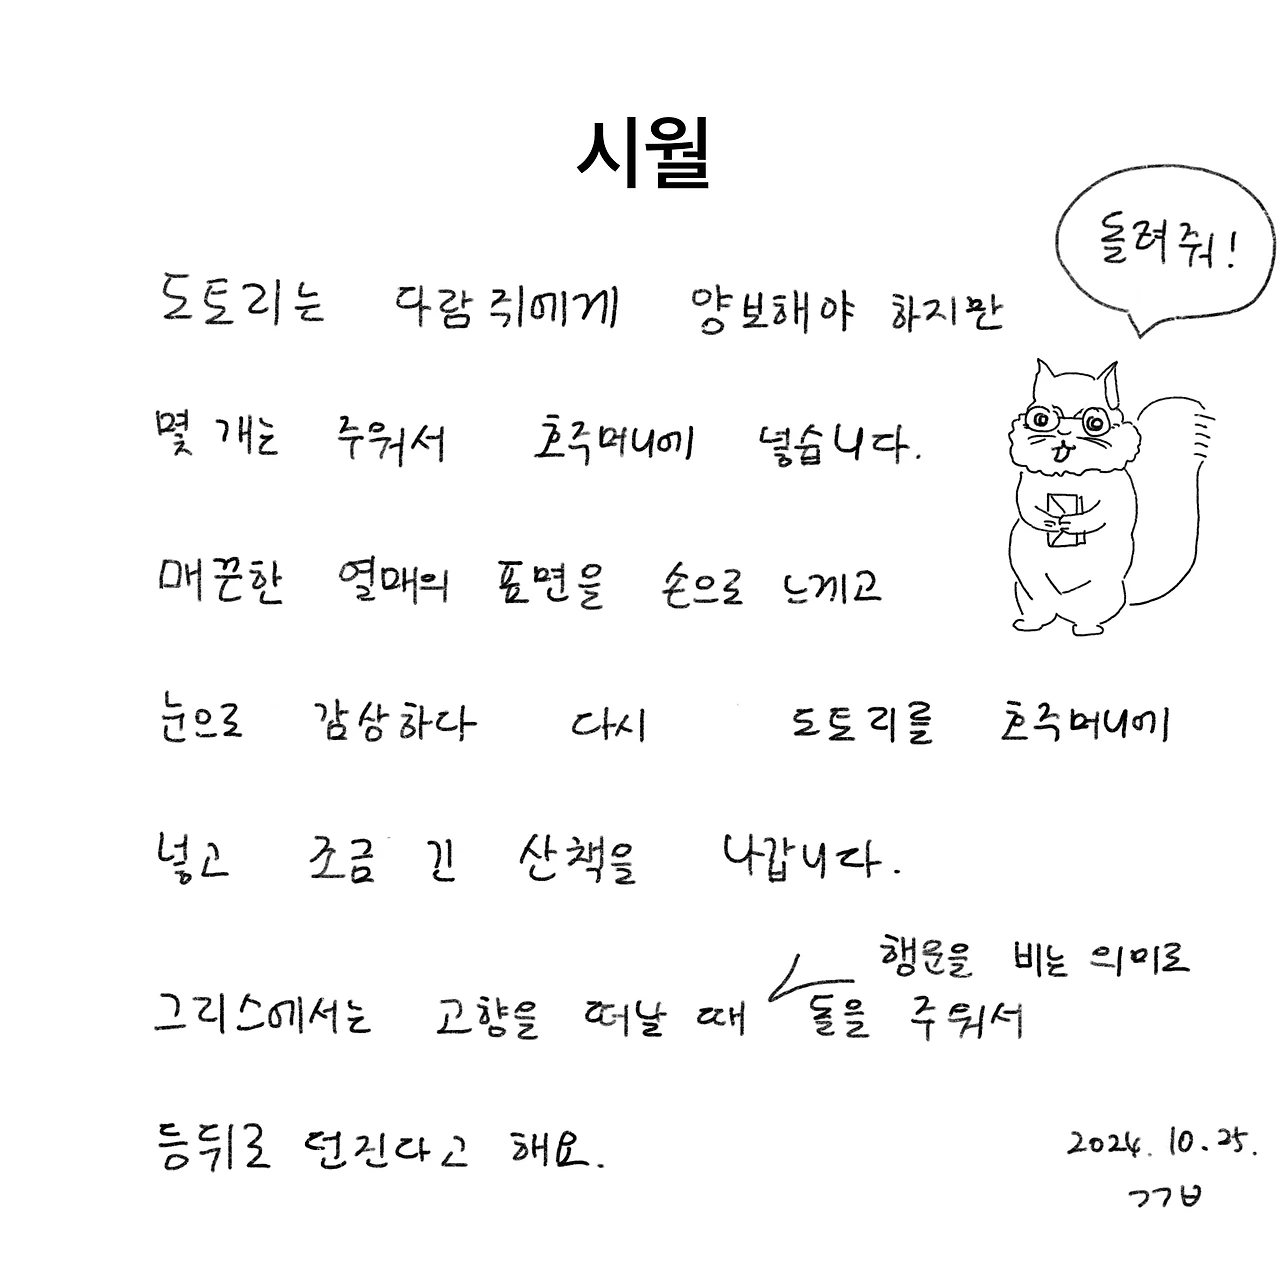 시월
돌려줘!
도토리는 다람쥐에게 양보해야 하지만
몇 개는 주워서 호주머니에 넣습니다.
매끈한 열매의 표면을 손으로 느끼고
눈으로 감상하다 다시 도토리를 호주머니에
넣고 조금 긴 산책을 나갑니다.
행운을 비는 의미로
그리스에서는 고향을 떠날 때 돌을 주워서
등뒤로 던진다고 해요.
2024. 10. 25.
ㄱㄱㅂ